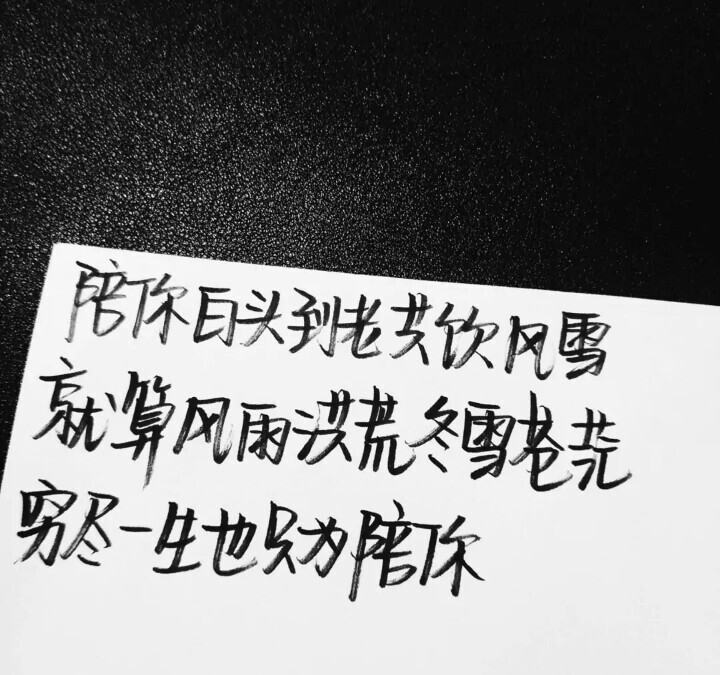 陪你白头到老共饮风雪
就算风雨洪荒冬雪苍茫
穷尽一生也只为陪你